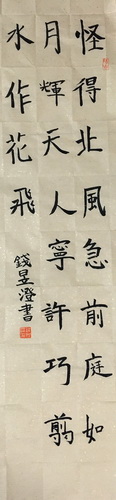 怪得北風急前庭如
月輝天人寧許巧剪
水作花飛
錢昱澄書